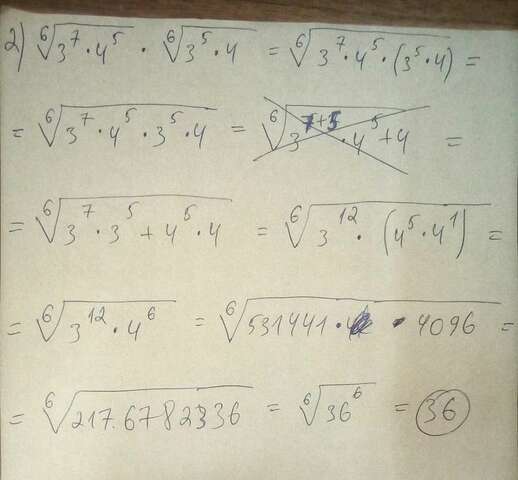 2) ⁶√(3⁷·4⁵) · ⁶√(3⁵·4) = ⁶√(3⁷·4⁵·(3⁵·4)) =
= ⁶√(3⁷·4⁵·3⁵·4) = ⁶√(3⁷⁺⁵·4⁵+4) =
= ⁶√(3⁷·3⁵+4⁵·4) = ⁶√(3¹²·(4⁵·4¹)) =
= ⁶√(3¹²·4⁶) = ⁶√(531441·4096) =
= ⁶√(217.6782336) = ⁶√(36⁶) = 36